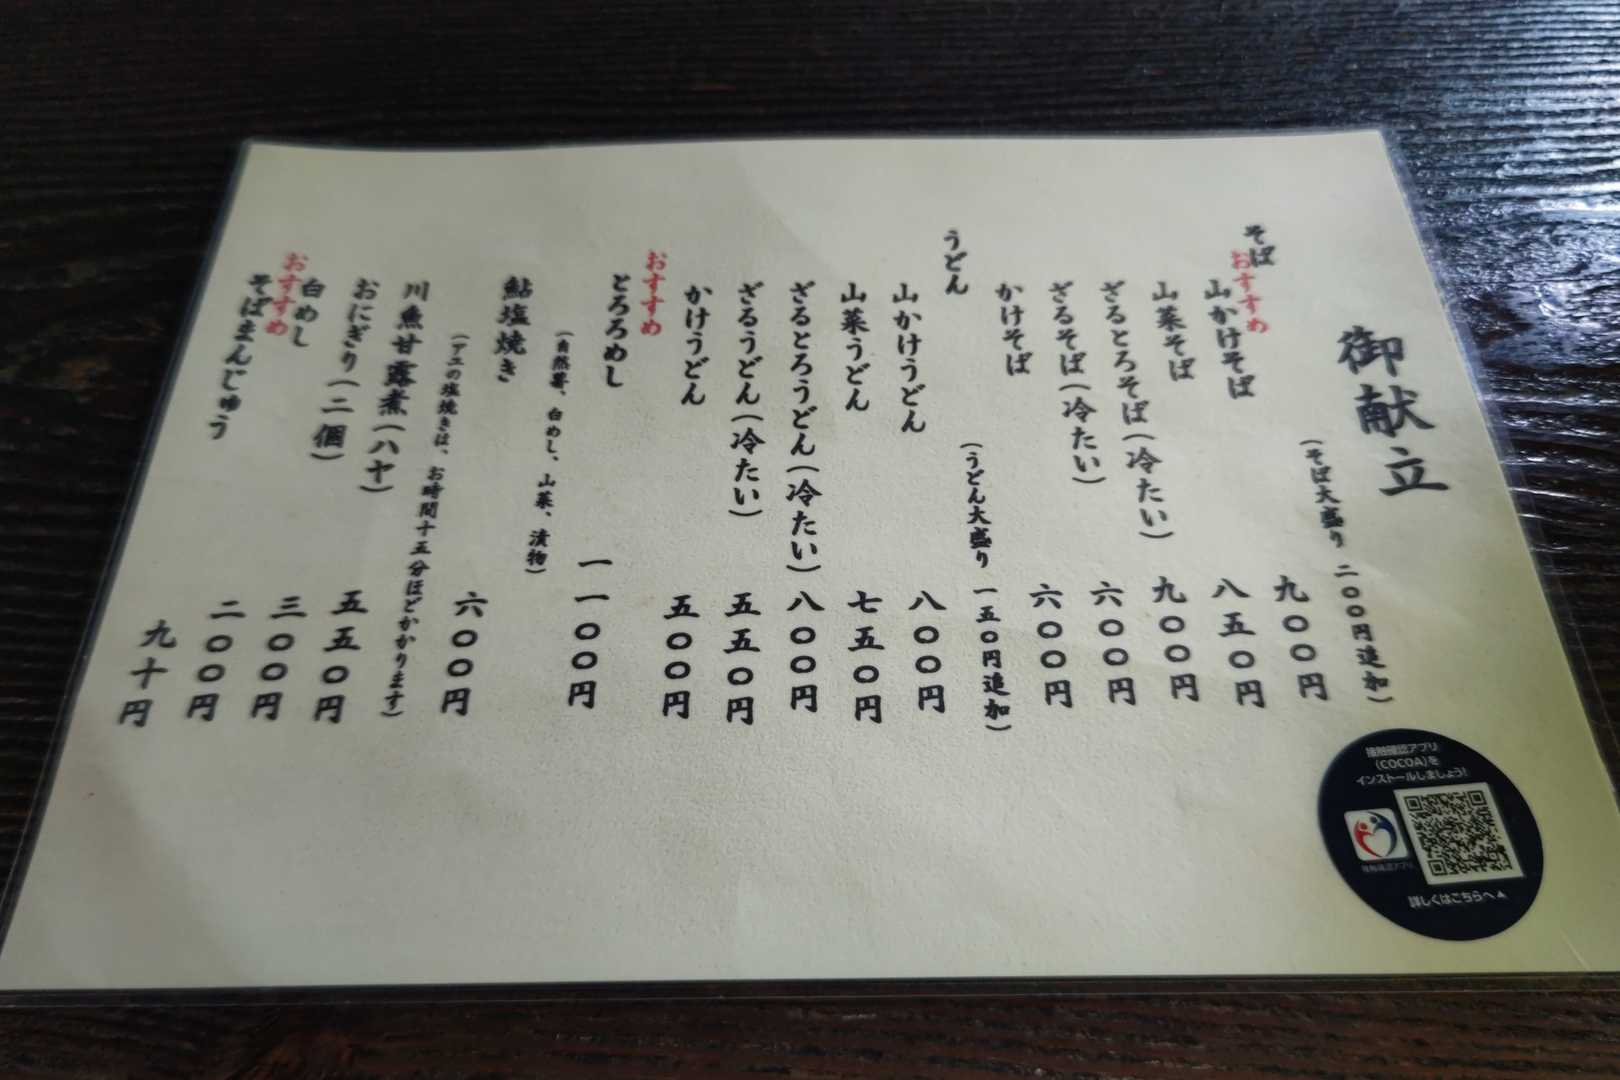 御献立
そば
(そば大盛り 二〇〇円追加)
おすすめ
山かけそば 九〇〇円
山菜そば 八五〇円
ざるとろそば(冷たい) 九〇〇円
ざるそば(冷たい) 六〇〇円
かけそば 六〇〇円
うどん
(うどん大盛り 一五〇円追加)
山かけうどん 八〇〇円
山菜うどん 七五〇円
ざるとろうどん(冷たい) 八〇〇円
ざるうどん(冷たい) 五五〇円
かけうどん 五〇〇円
おすすめ
とろろめし 一一〇〇円
(自然薯、白めし、山菜、漬物)
鮎塩焼き 六〇〇円
(アユの塩焼きは、お時間十五分ほどかかります)
川魚甘露煮(ハヤ) 五五〇円
おにぎり(二個) 三〇〇円
白めし 二〇〇円
おすすめ
そばまんじゅう 九十円
接触確認アプリ
(COCOA)を
インストールしましょう!
接触確認アプリ
詳しくはこちらへ▲